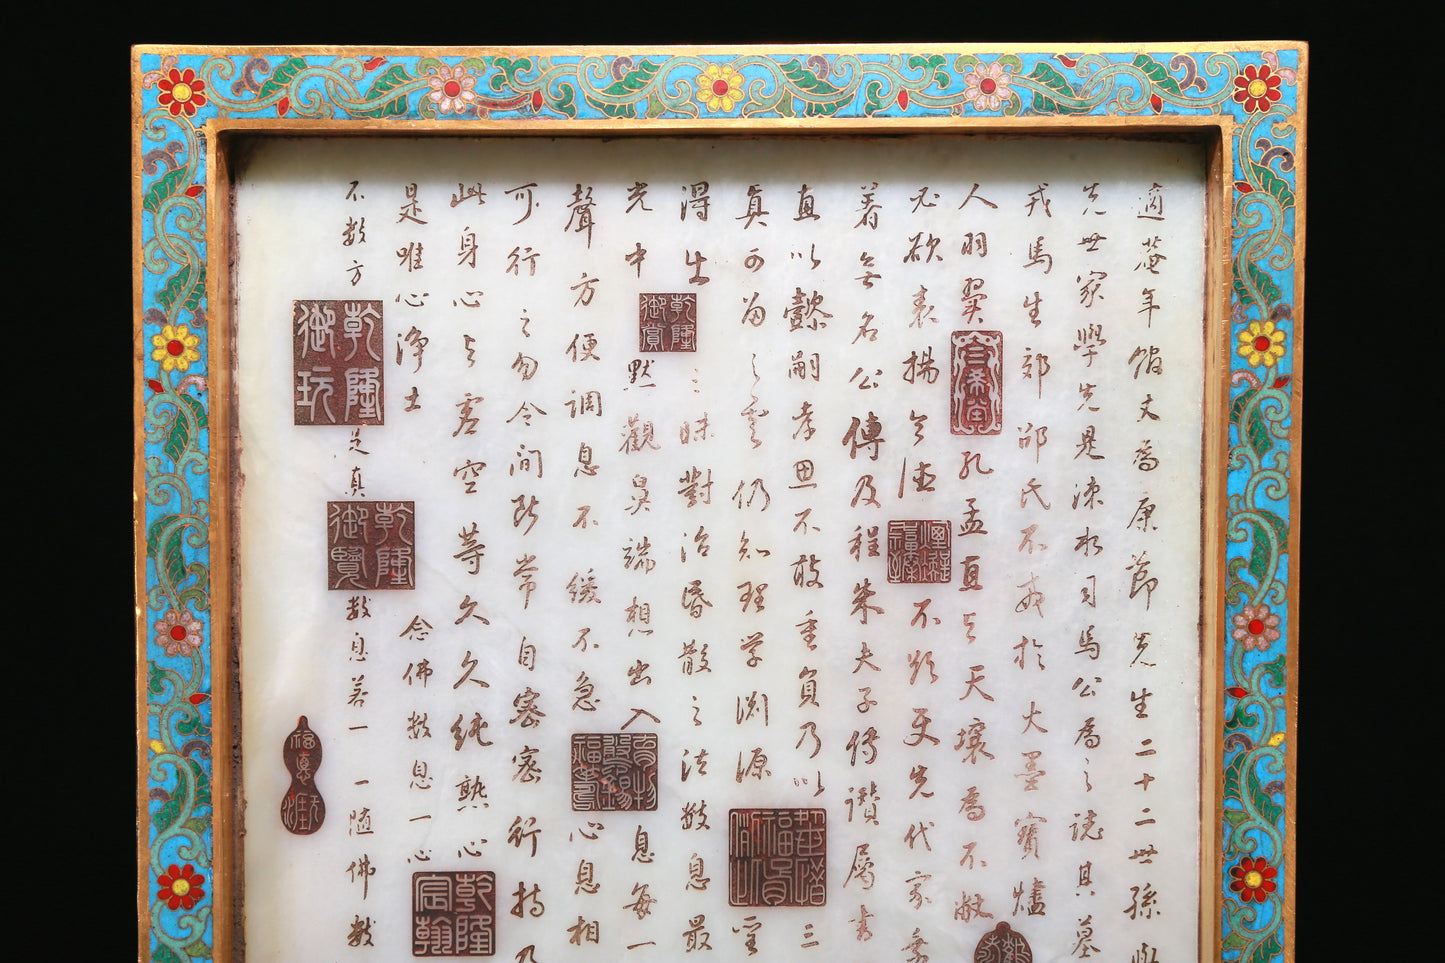 適菴年館丈為康節先生二十二世孫
先世家學先是涑水司馬公為之誌其墓
戎馬生郊邵氏不戒於大墨寶爐
人羽翼孔孟直与天壤為不敝
必欲表揚令德不顯更先代家
著無名公傳及程朱夫子傳讚屬書
直以懿嗣孝思不敢重負乃以三
真可為之宝仍知理学淵源
得生三昧對治昏散之法數息最
光中默觀鼻端想出入息每一
聲方便調息不緩不急心息相
可行之勿令間断常自密密行持乃
此身心与虚空等久久純熟心
是唯心淨土念佛數息一心
不數方是真數息若一一随佛數
乾隆御賞
乾隆御玩
乾隆御覽
乾隆宸翰
三希堂